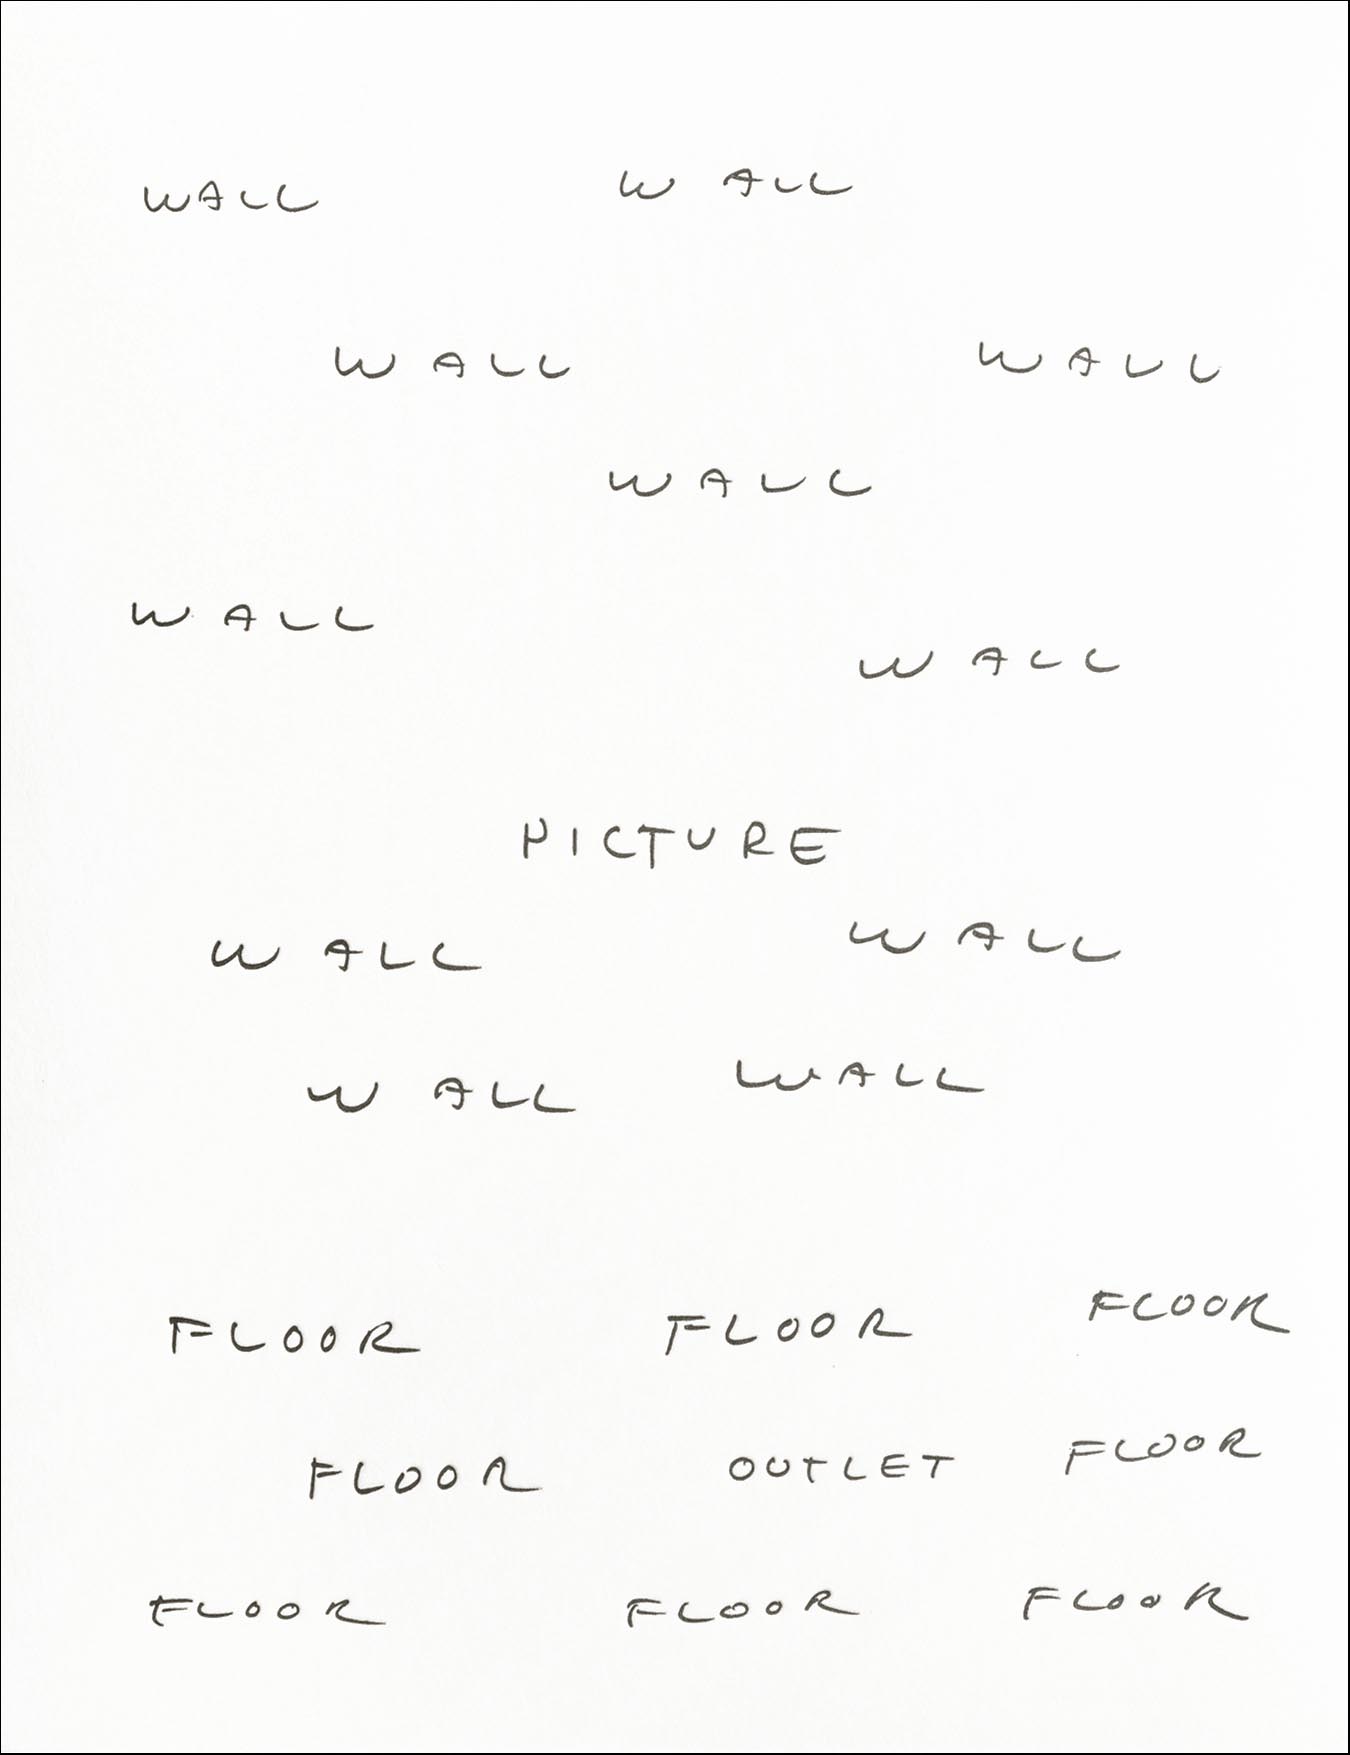 WALL WALL
WALL WALL
WALL
WALL
WALL
PICTURE
WALL WALL
WALL WALL
FLOOR FLOOR FLOOR
FLOOR OUTLET FLOOR
FLOOR FLOOR FLOOR